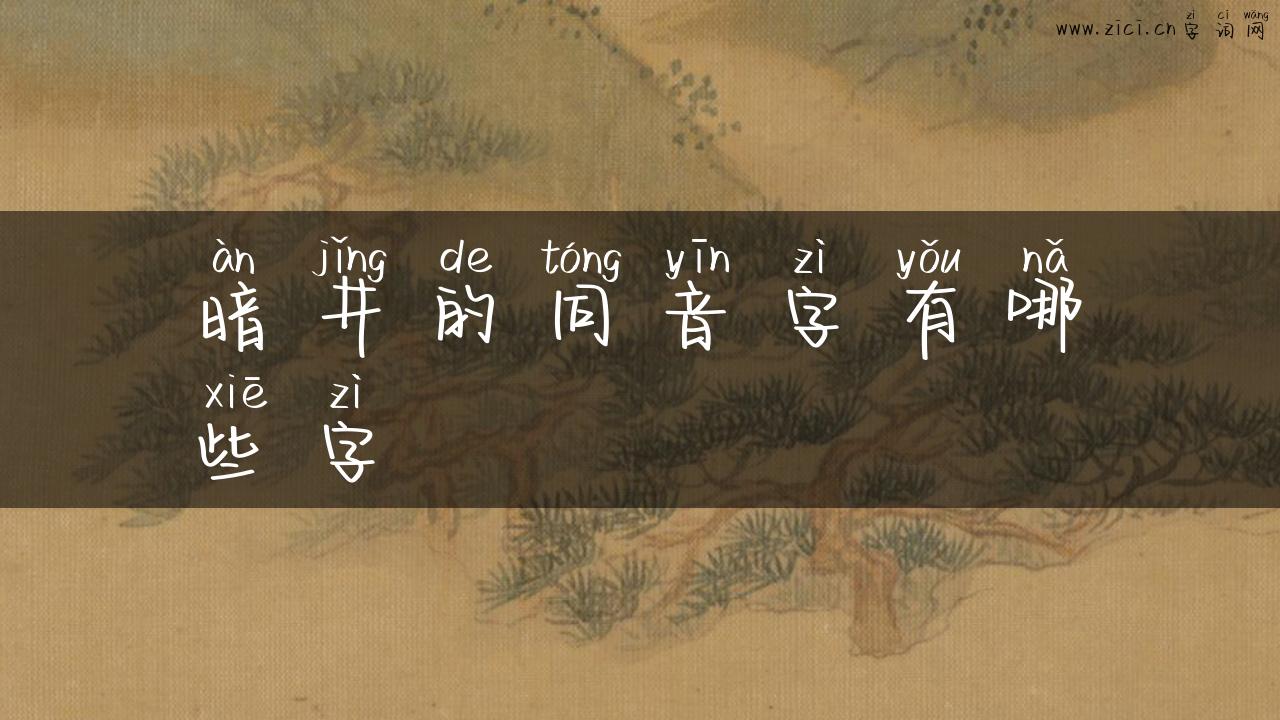 zì cí wǎng
www.zici.cn 字词网
àn jǐng de tóng yīn zì yǒu nǎ
暗井的同音字有哪
xiē zì
些字